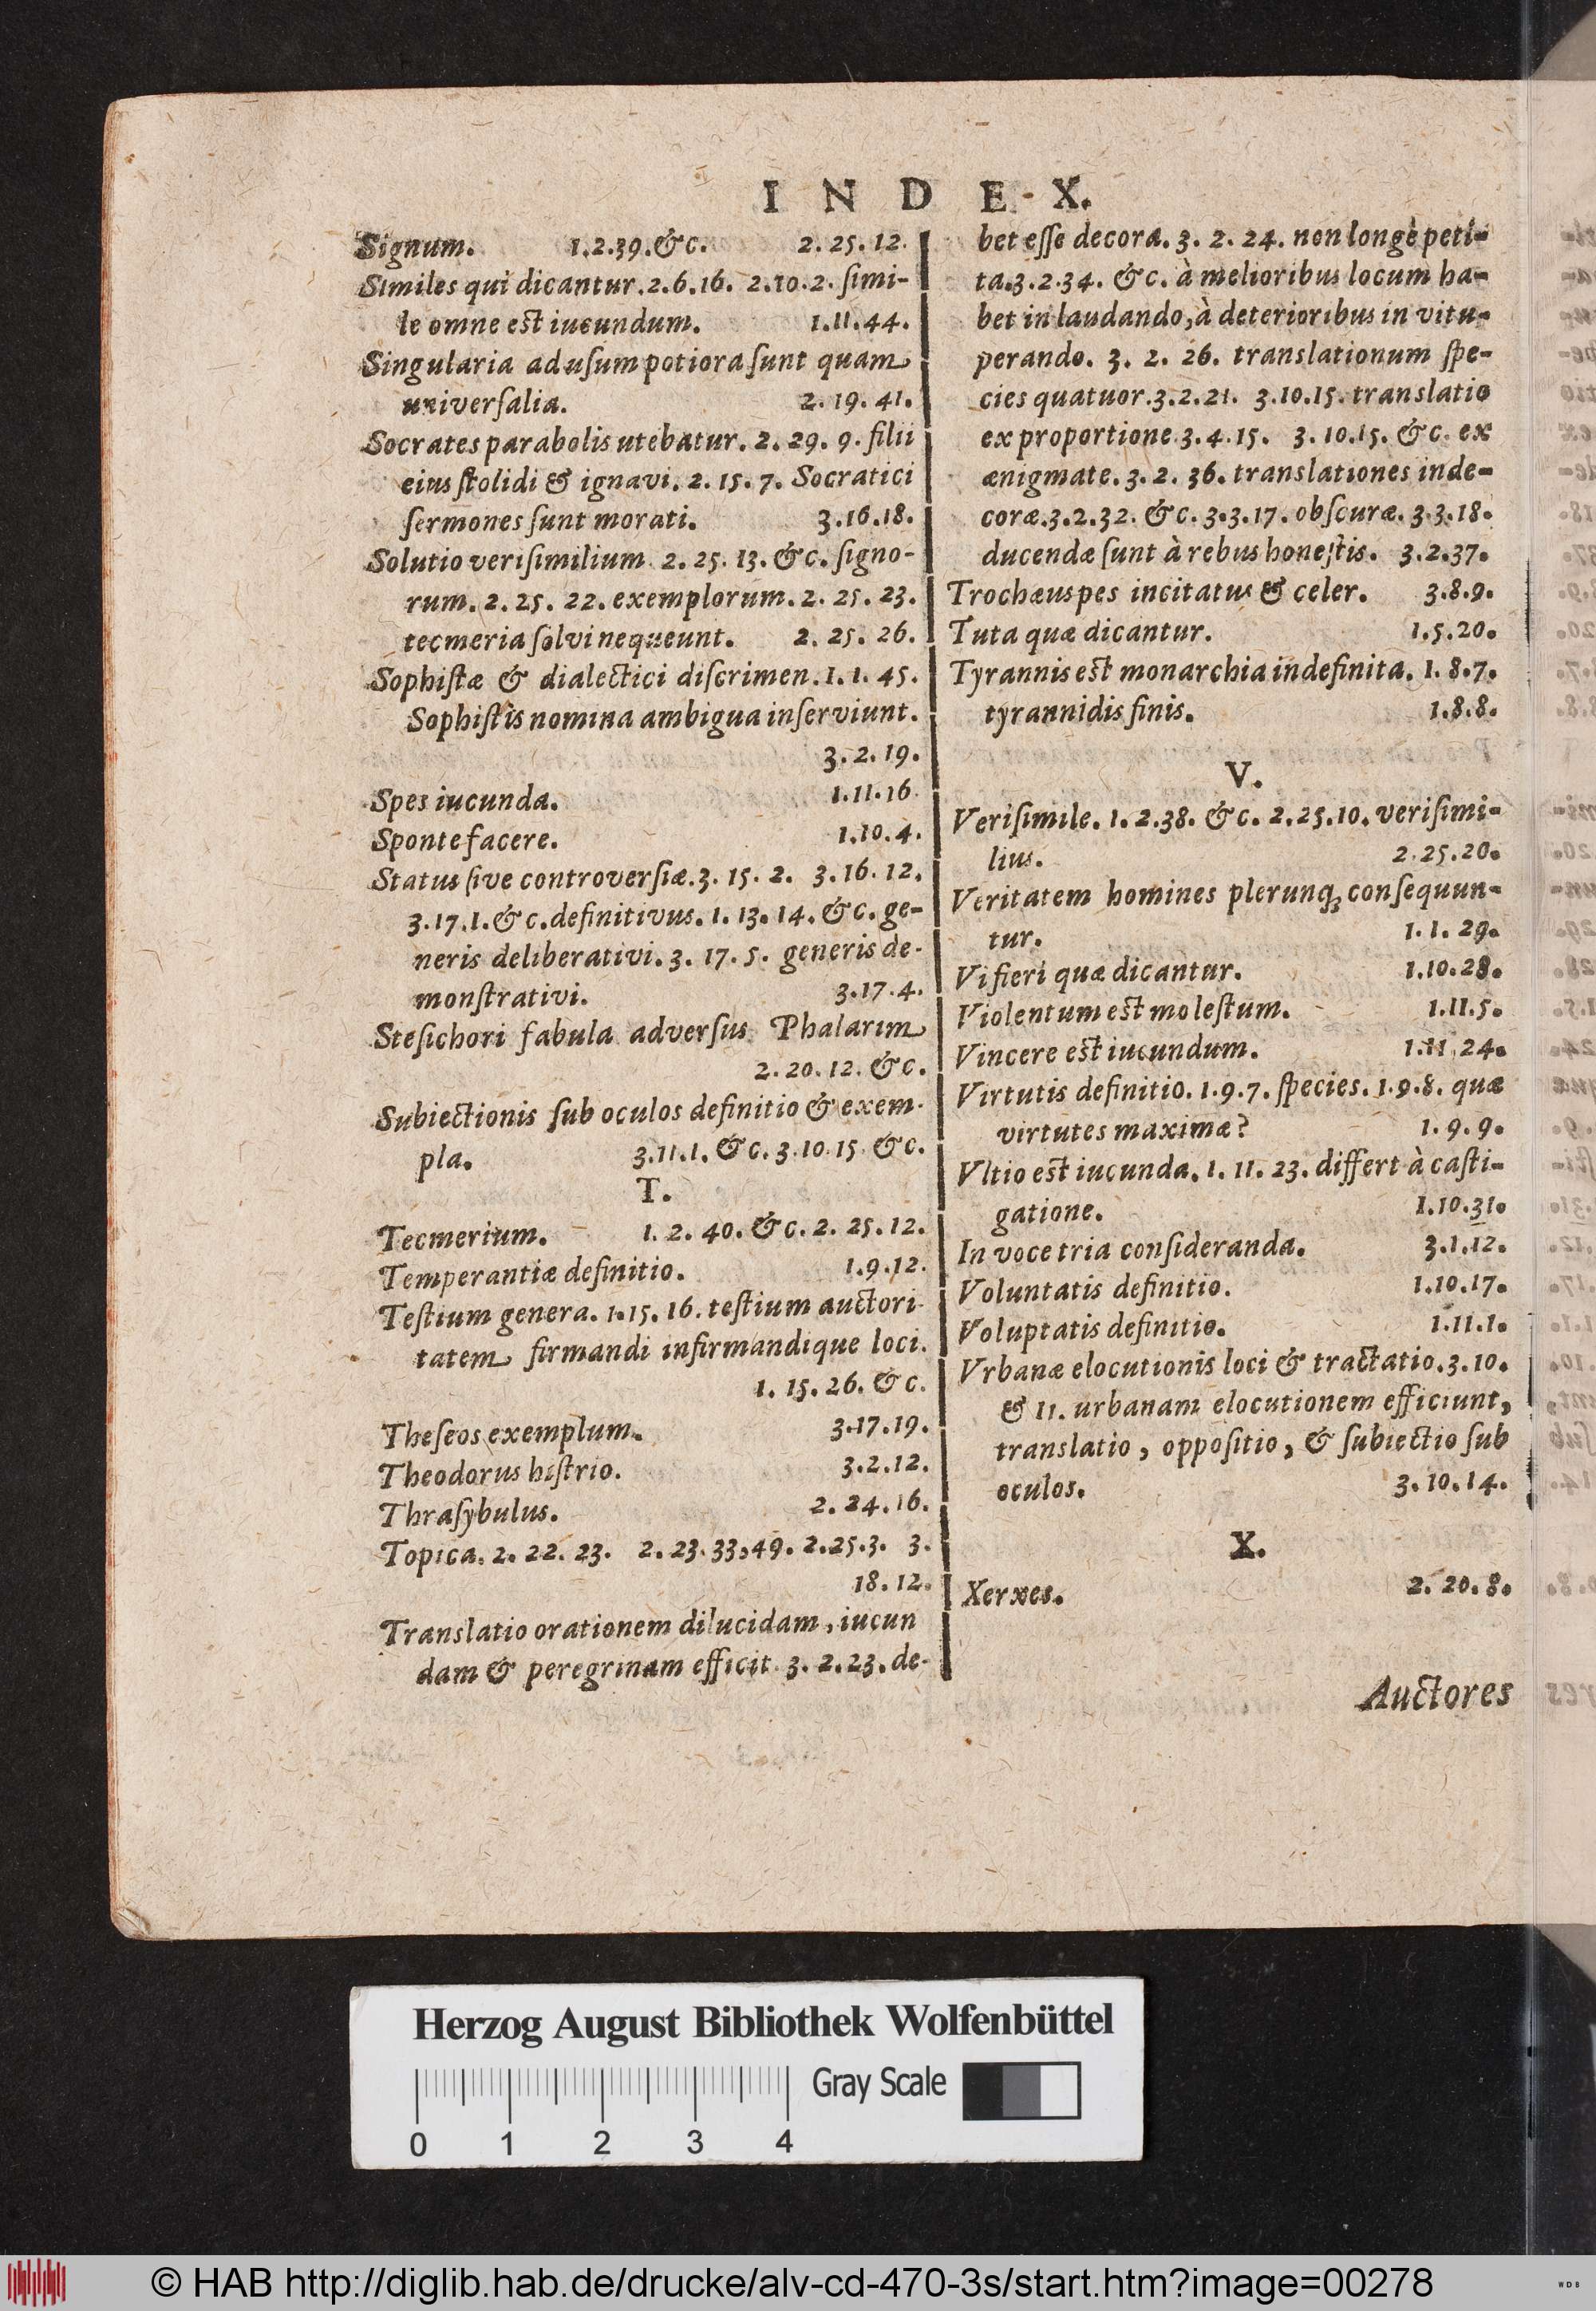 INDEX.
Signum. 1.2.39.&c. 2. 25. 12.
Similes qui dicantur.2.6.16. 2.10.2. ſimi-
le omne est iucundum. 1.11.44.
Singularia ad uſum potiora ſunt quam
univerſalia. 2. 19. 41.
Socrates parabolis utebatur. 2. 29. 9. filii
eius ſtolidi & ignavi. 2. 15. 7. Socratici
ſermones ſunt morati. 3.16.18.
Solutio veriſimilium 2. 25. 13. &c. ſigno-
rum. 2. 25. 22. exemplorum. 2. 25. 23.
tecmeria ſolvi nequeunt. 2. 25. 26.
Sophiſtæ & dialectici diſcrimen. 1. 1. 45.
Sophiſtis nomina ambigua inſerviunt.
3. 2. 19.
Spes iucunda. 1.11.16
Sponte facere. 1.10.4.
Status ſive controverſiæ.3. 15. 2. 3.16. 12.
3.17.1.&c.definitivus. 1. 13. 14. &c. ge-
neris deliberativi. 3. 17. 5. generis de-
monſtrativi. 3.17.4.
Steſichori fabula adverſus Phalarim
2. 20. 12. &c.
Subiectionis ſub oculos definitio & exem-
pla. 3.11.1. &c. 3.10.15. &c.
T.
Tecmerium. 1. 2. 40. &c. 2. 25. 12.
Temperantiæ definitio. 1.9.12.
Teſtium genera. 1.15. 16. teſtium auctori-
tatem firmandi infirmandique loci.
1. 15. 26. &c.
Theſeos exemplum. 3.17.19.
Theodorus hiſtrio. 3.2.12.
Thraſybulus. 2. 24. 16.
Topica. 2. 22. 23. 2. 23. 33,49. 2.25.3. 3.
18. 12.
Translatio orationem dilucidam, iucun
dam & peregrinam efficit. 3. 2. 23. de-
bet eſſe decora. 3. 2. 24. non longè peti-
ta.3.2.34. &c. à melioribus locum ha-
bet in laudando, à deterioribus in vitu-
perando. 3. 2. 26. translationum ſpe-
cies quatuor.3.2.21. 3.10.15. translatio
ex proportione.3.4.15. 3.10.15. &c. ex
ænigmate. 3. 2. 36. translationes inde-
coræ.3.2.32. &c. 3.3.17. obſcuræ. 3.3.18.
ducendæ ſunt à rebus honeſtis. 3.2.37.
Trochæus pes incitatus & celer. 3.8.9.
Tuta quæ dicantur. 1.5.20.
Tyrannis est monarchia indefinita. 1. 8.7.
tyrannidis finis. 1.8.8.
V.
Veriſimile. 1. 2.38. &c. 2.25.10. veriſimi-
lius. 2.25.20.
Veritatem homines plerunq; conſequun-
tur. 1. 1. 29.
Vi fieri quæ dicantur. 1.10.28.
Violentum est moleſtum. 1.11.5.
Vincere est iucundum. 1.11.24.
Virtutis definitio. 1.9.7. ſpecies. 1.9.8. quæ
virtutes maximæ? 1. 9. 9.
Vltio est iucunda. 1. 11. 23. differt à caſti-
gatione. 1.10.31.
In voce tria conſideranda. 3.1.12.
Voluntatis definitio. 1.10.17.
Voluptatis definitio. 1.11.1.
Vrbanæ elocutionis loci & tractatio.3.10.
& 11. urbanam elocutionem efficiunt,
translatio, oppoſitio, & ſubiectio ſub
oculos. 3.10.14.
X.
Xerxes. 2. 20. 8.
Auctores
Herzog August Bibliothek Wolfenbüttel
Gray Scale
0 1 2 3 4
© HAB http://diglib.hab.de/drucke/alv-cd-470-3s/start.htm?image=00278